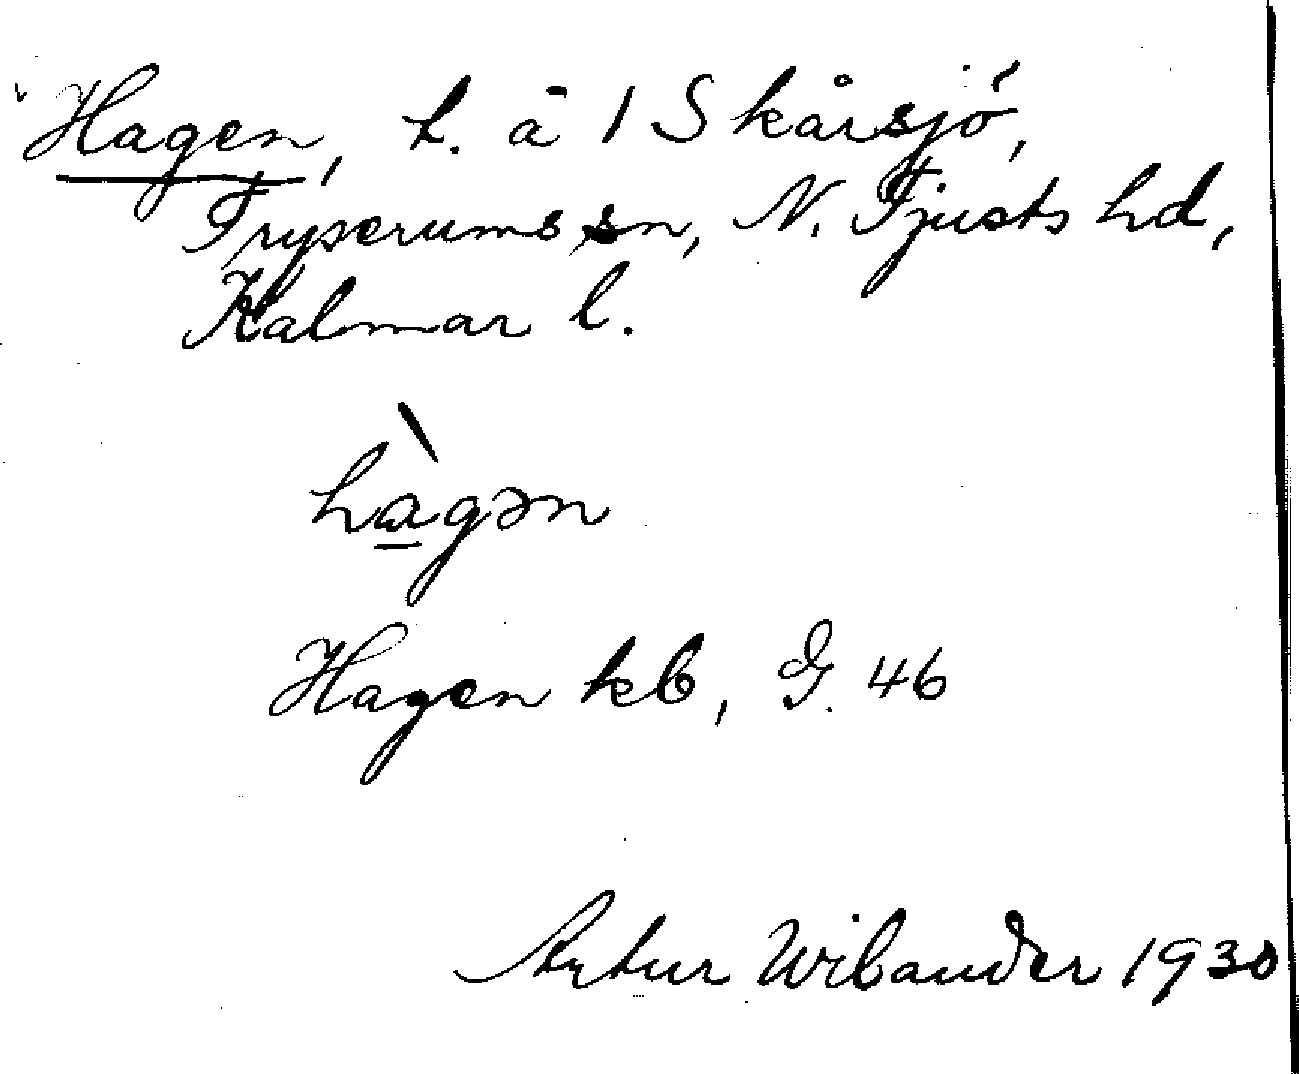 Hagen, t. å 1 Skårsjö,
Fryserums sn, N. Tjusts hd,
Kalmar l.
hàgən
Hagen kb, G. 46
Artur Wibander 1930